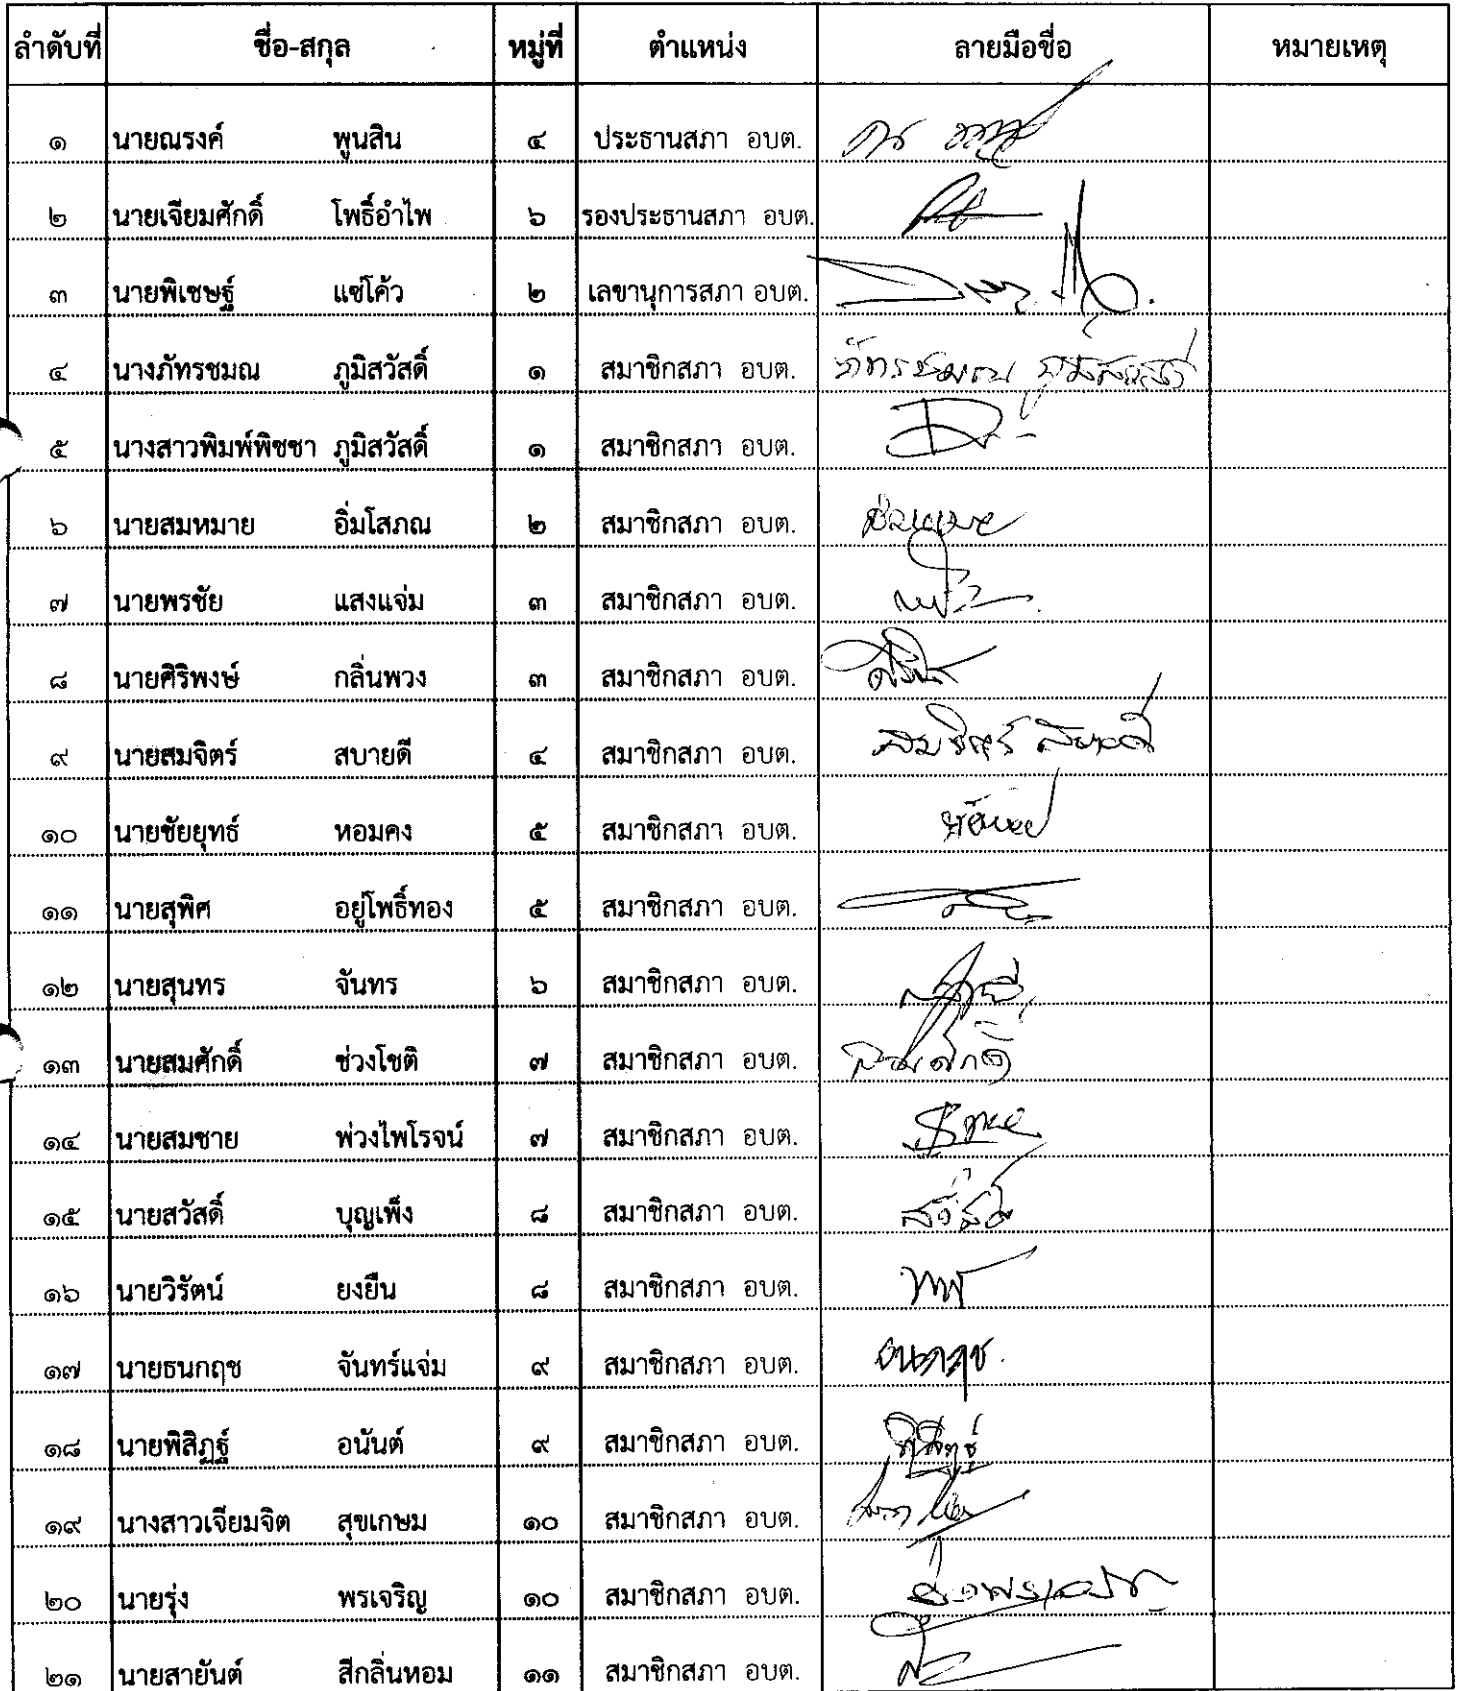 ลำดับที่ ชื่อ-สกุล หมู่ที่ ตำแหน่ง ลายมือชื่อ หมายเหตุ
๑ นายณรงค์ พูนสิน ๔ ประธานสภา อบต.
๒ นายเจียมศักดิ์ โพธิ์อำไพ ๖ รองประธานสภา อบต.
๓ นายพิเชษฐ์ แซ่โค้ว ๒ เลขานุการสภา อบต.
๔ นางภัทรชมณ ภูมิสวัสดิ์ ๑ สมาชิกสภา อบต. ภัทรชมณ ภูมิสวัสดิ์
๕ นางสาวพิมพ์พิชชา ภูมิสวัสดิ์ ๑ สมาชิกสภา อบต.
๖ นายสมหมาย อิ่มโสภณ ๒ สมาชิกสภา อบต. สมหมาย
๗ นายพรชัย แสงแจ่ม ๓ สมาชิกสภา อบต.
๘ นายศิริพงษ์ กลิ่นพวง ๓ สมาชิกสภา อบต.
๙ นายสมจิตร์ สบายดี ๔ สมาชิกสภา อบต. สมจิตร์ สบายดี
๑๐ นายชัยยุทธ์ หอมคง ๕ สมาชิกสภา อบต.
๑๑ นายสุพิศ อยู่โพธิ์ทอง ๕ สมาชิกสภา อบต.
๑๒ นายสุนทร จันทร ๖ สมาชิกสภา อบต.
๑๓ นายสมศักดิ์ ช่วงโชติ ๗ สมาชิกสภา อบต. สมศักดิ์
๑๔ นายสมชาย พ่วงไพโรจน์ ๗ สมาชิกสภา อบต.
๑๕ นายสวัสดิ์ บุญเพ็ง ๘ สมาชิกสภา อบต. สวัสดิ์
๑๖ นายวิรัตน์ ยงยืน ๘ สมาชิกสภา อบต.
๑๗ นายธนกฤช จันทร์แจ่ม ๙ สมาชิกสภา อบต. ธนกฤช
๑๘ นายพิสิฏฐ์ อนันต์ ๙ สมาชิกสภา อบต. พิสิฏฐ์
๑๙ นางสาวเจียมจิต สุขเกษม ๑๐ สมาชิกสภา อบต.
๒๐ นายรุ่ง พรเจริญ ๑๐ สมาชิกสภา อบต.
๒๑ นายสายันต์ สีกลิ่นหอม ๑๑ สมาชิกสภา อบต.